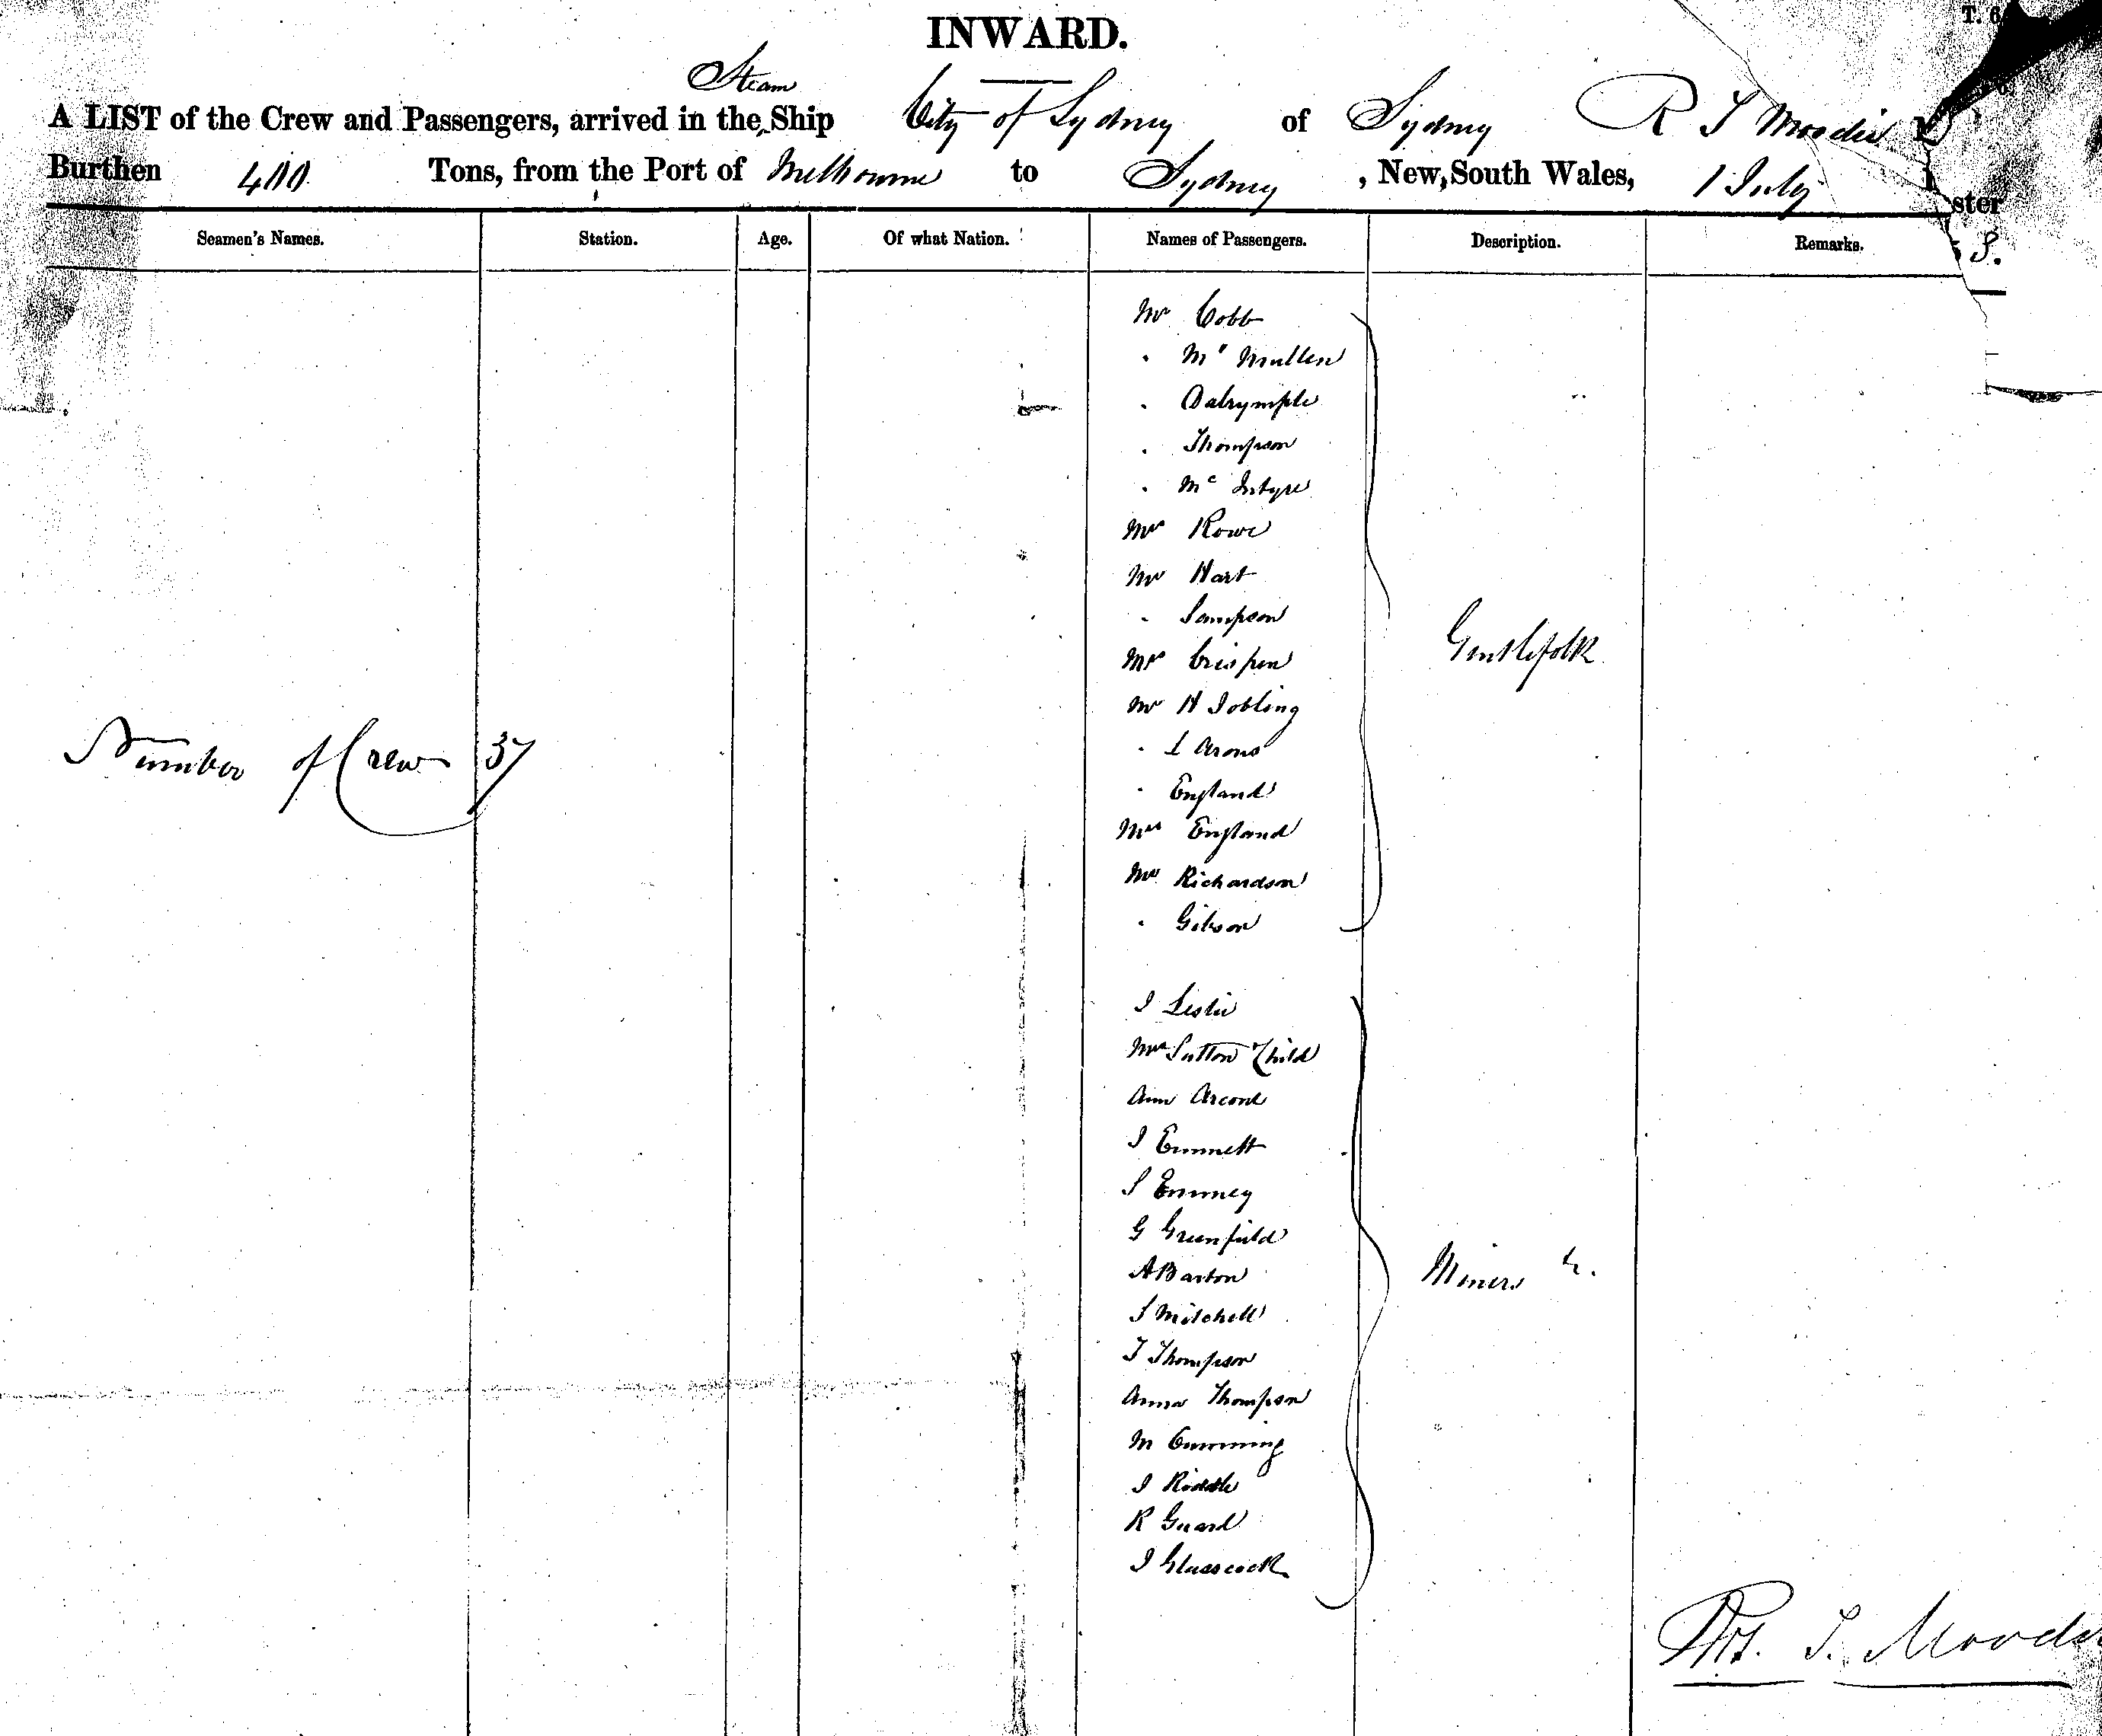 T. 6
INWARD.
Steam
A LIST of the Crew and Passengers, arrived in the Ship City of Sydney of Sydney R T Moodie
Burthen 400 Tons, from the Port of Melbourne to Sydney, New South Wales, 1 July
ster
Seamen's Names. Station. Age. Of what Nation. Names of Passengers. Description. Remarks.
Mr Cobb
" Mc Mullen
" Dalrymple
" Thompson
" Mc Intyre
Mr Rowe
Mr Hart
" Sampson
Crispen
Gentlefolk
Mr H Jobling
" L Arons
Number of Crew 37
" England
Mrs England
Mr Richardson
" Gibson
J Leslie
Mrs Sutton Child
Ann
J Emmett
S Emmey
G Greenfield
A Barton
Miners &c.
S Mitchell
T Thompson
Anna Thompson
M Cumming
J Riddle
R Guard
J Glasscock
T. Moodie